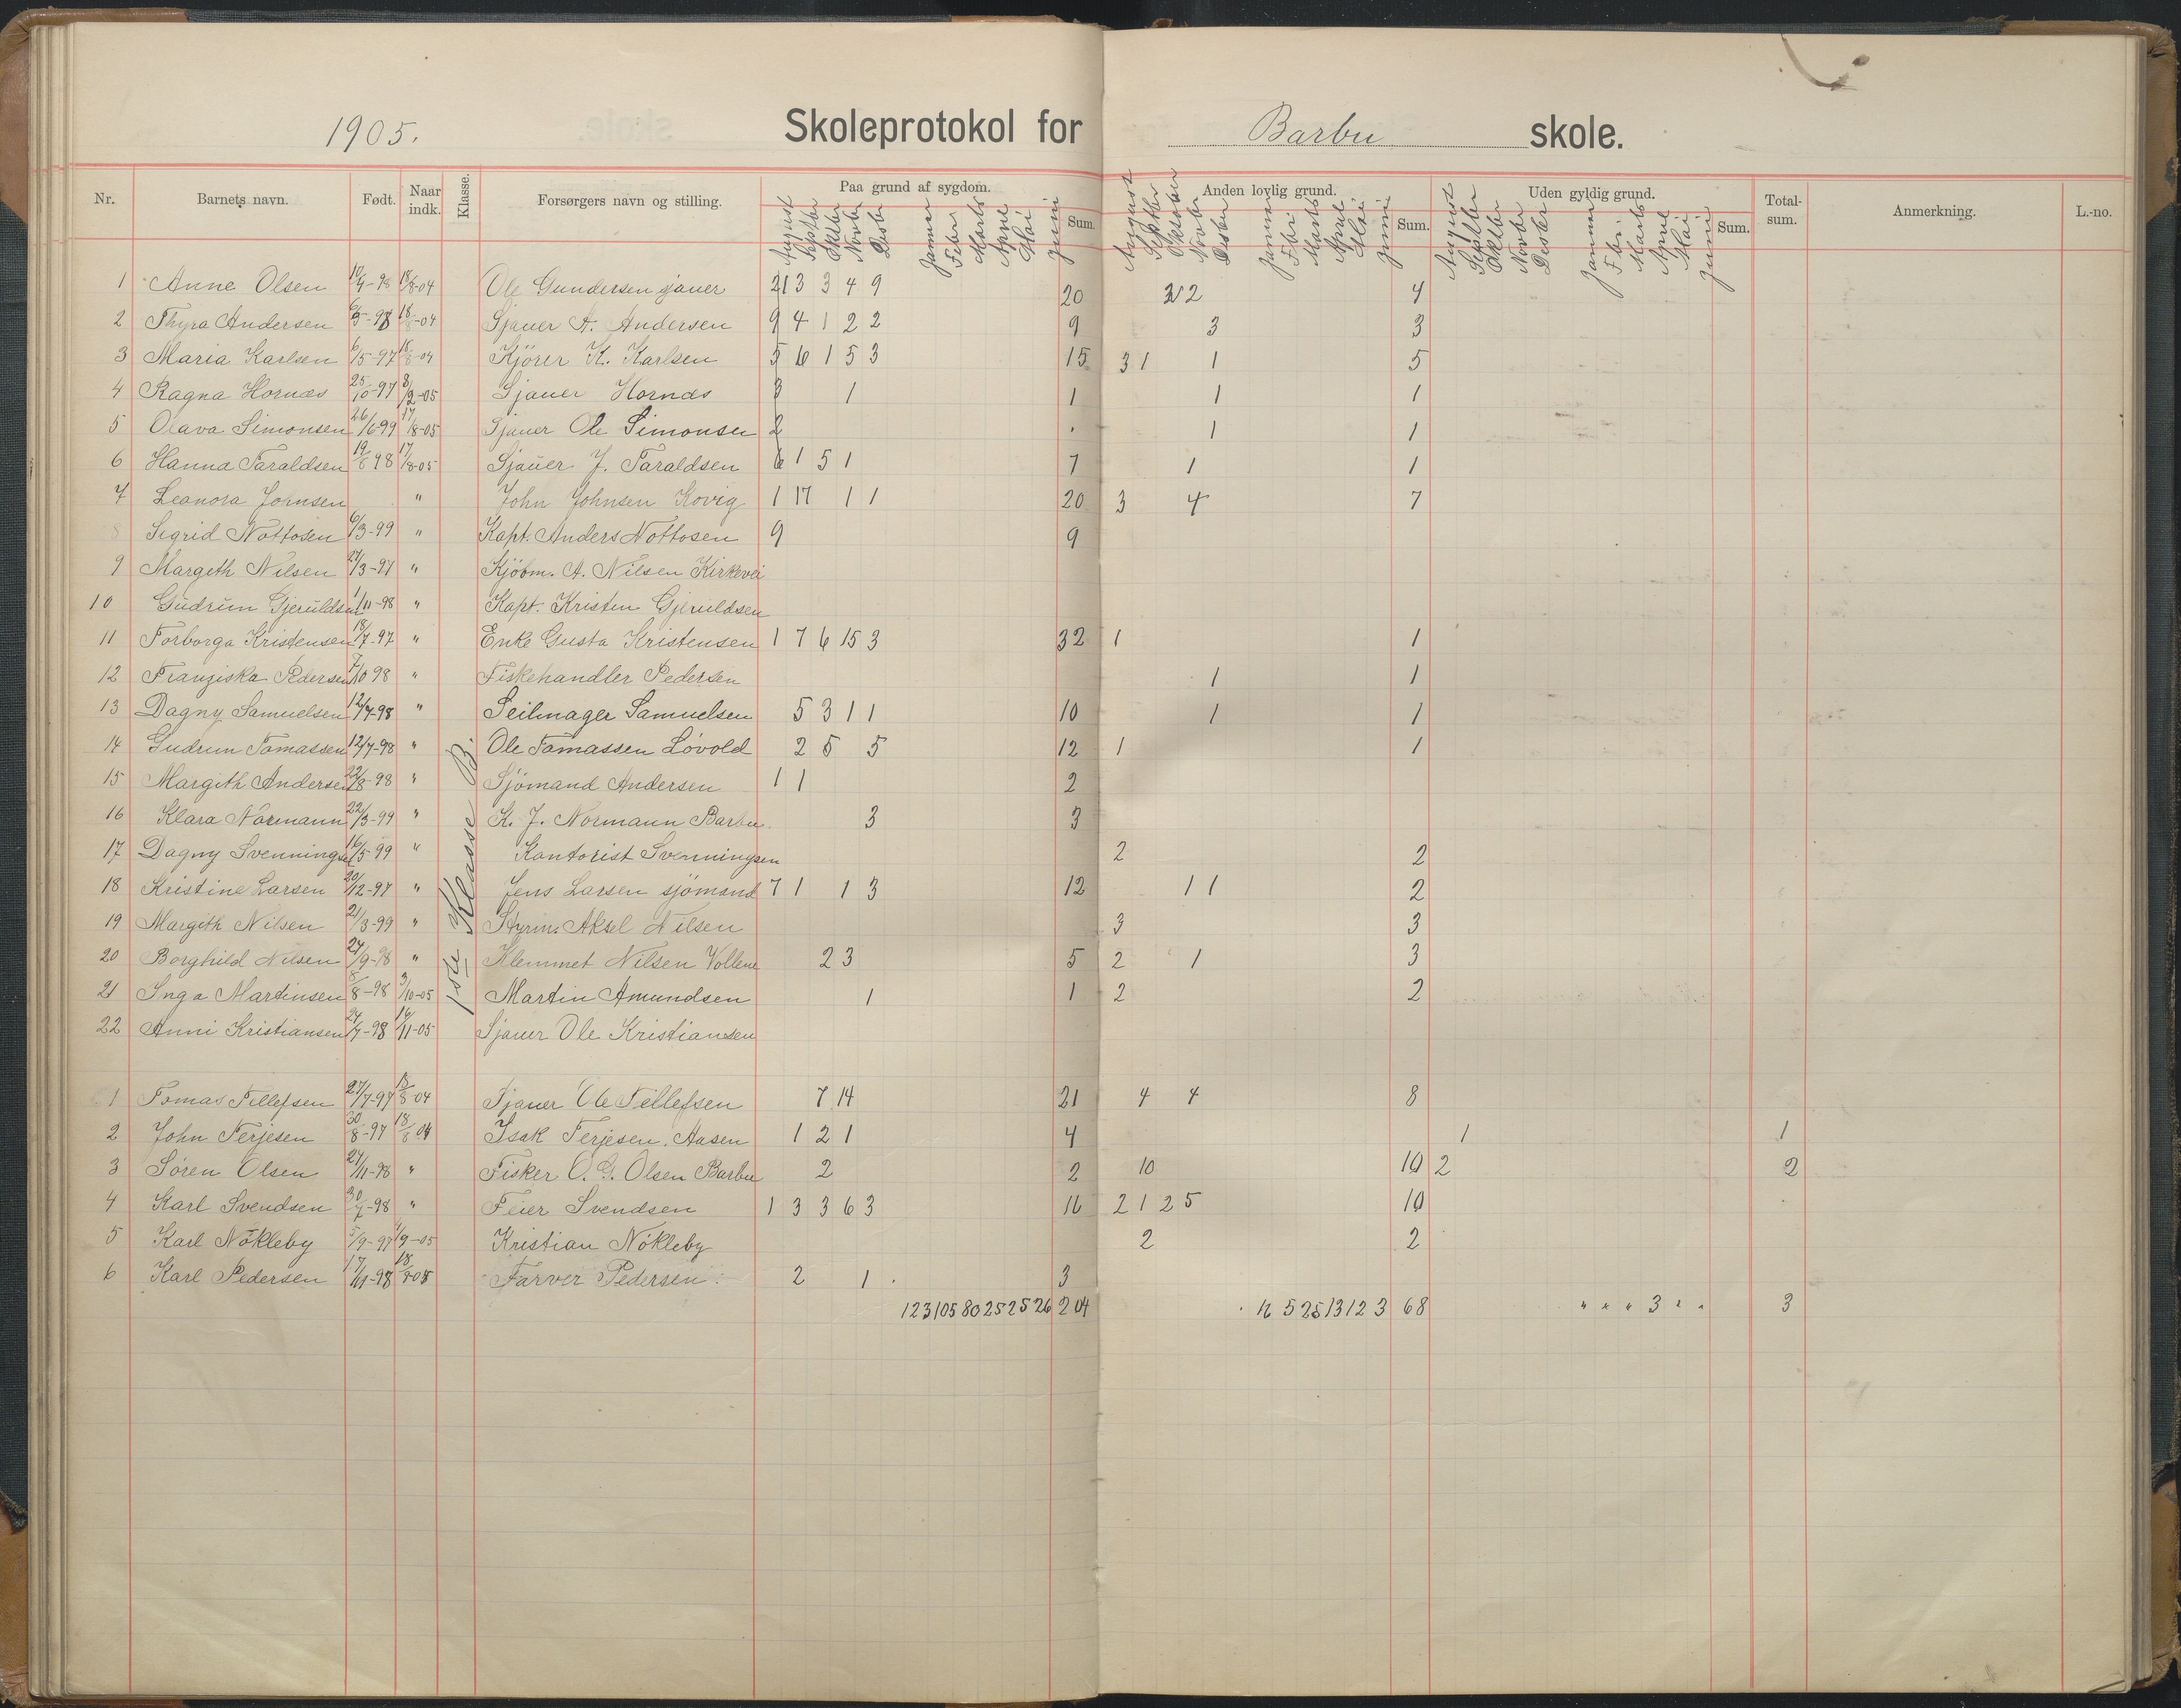 1905. Skoleprotokol for Barbu skole.
Nr. Barnets navn. Født. Naar indk. Klasse. Forsørgers navn og stilling. Paa grund af sygdom. Sum. Anden lovlig grund. Sum. Uden gyldig grund. Sum. Total-sum. Anmerkning. L.-no.
August Septbr Oktbr Novbr Desbr Januar Febr Marts April Mai Juni August Septbr Oktober Novbr Desbr Januar Fbr Marts April Mai Juni August Septbr Oktbr Novbr Desbr Januar Fbr Marts April Mai Juni
1 Anne Olsen 10/4-98 18/8-04 Ole Gundersen sjauer 213 3 4 9 20 2 2 4
2 Thyra Andersen 18/8-04 Sjauer A. Andersen 9 4 1 2 2 9 3 3
3 Maria Karlsen 6/5-97 18/8-04 Kjörer K. Karlsen 5 6 1 5 3 15 3 1 1 5
4 Ragna Hornæs 25/10-97 8/9-05 Sjauer Hornæs 3 1 1 1 1
5 Olava Simonsen 26/6 99 17/8-05 Sjauer Ole Simonsen 2 1 1
6 Hanna Taraldsen 19/8 98 17/8-05 Sjauer J. Taraldsen 6 1 5 1 7 1 1
7 Leanora Johnsen " John Johnsen Kovig 1 17 1 1 20 3 4 7
8 Sigrid Nottosen 6/3-99 " Kapt. Anders Nottosen 9 9
9 Margeth Nilsen 27/3-97 " Kjöbm. A. Nilsen Kirkevei
10 Gudrun Gjeruldsen 1/11-98 " Kapt. Kristen Gjeruldsen
11 Torborga Kristensen 18/7-97 " Enke Gusta Kristensen 1 7 6 15 3 32 1 1
12 Franziska Pedersen 7/10 98 " Fiskehandler Pedersen 1 1
13 Dagny Samuelsen 12/7-98 " Seilmager Samuelsen 5 3 1 1 10 1 1
14 Gudrun Tomassen 12/7-98 " Ole Tomassen Lövold 2 5 5 12 1 1
15 Margith Andersen 22/8-98 " Sjömand Andersen 1 1 2
16 Klara Normann 22/3-99 " K. J. Normann Barbu 3 3
17 Dagny Svenningsen 16/5-99 " Kontorist Svenningsen 2 2
18 Kristine Larsen 20/12-97 " Jens Larsen sjömand 7 1 1 3 12 1 1 2
19 Margith Nilsen 21/3-99 " Styrm. Aksel Nilsen 3 3
20 Borghild Nilsen 24/9-98 " Klemmet Nilsen Vollene 2 3 5 2 1 3
21 Inga Martinsen 8/8-98 3/10-05 Martin Amundsen 1 1 2 2
22 Anni Kristiansen 24/7-98 /11-05 Sjauer Ole Kristiansen
1ste Klasse B.
1 Tomas Tellefsen 27/7-97 18/8-04 Sjauer Ole Tellefsen 7 14 21 4 4 8
2 John Terjesen 30/8-97 18/8 04 Isak Terjesen. Aasen 1 2 1 4 1 1
3 Sören Olsen 24/11-98 " Fisker O. G. Olsen Barbu 2 2 10 10 2 2
4 Karl Svendsen 30/7-98 " Feier Svendsen 1 3 3 6 3 16 2 1 2 5 10
5 Karl Nökleby 5/9-97 1/9-05 Kristian Nökleby 2 2
6 Karl Pedersen 17/11-98 18/8 05 Farver Pedersen 2 1 3
123 105 80 25 25 26 204 12 5 25 13 12 3 68 " " " 3 " " 3